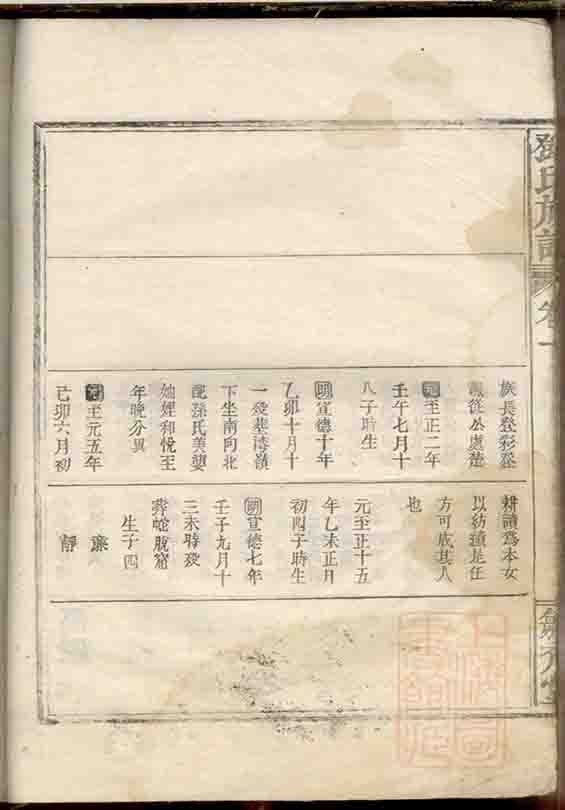 鄧氏族譜
卷一
族長登彩登
議從公處楚
元至正二年
壬午七月十
八子時生
明宣德十年
乙卯十月十
一歿墓湾嶺
下坐南向北
配孫氏美娶
妯娌和悅至
年晚分異
元至元五年
己卯六月初
耕讀爲本女
以紡績是任
方可成其人
也
元至正十五
年乙未正月
初四子時生
明宣德七年
壬子九月十
三未時歿
葬蛤蛻窩
生子四
廉
靜